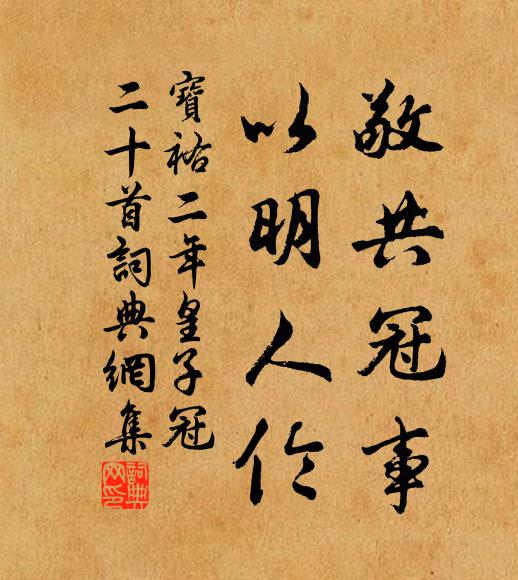 敬共冠事
以明人伦
寶祐二年皇子冠
二十首詞典網集
詞典网印